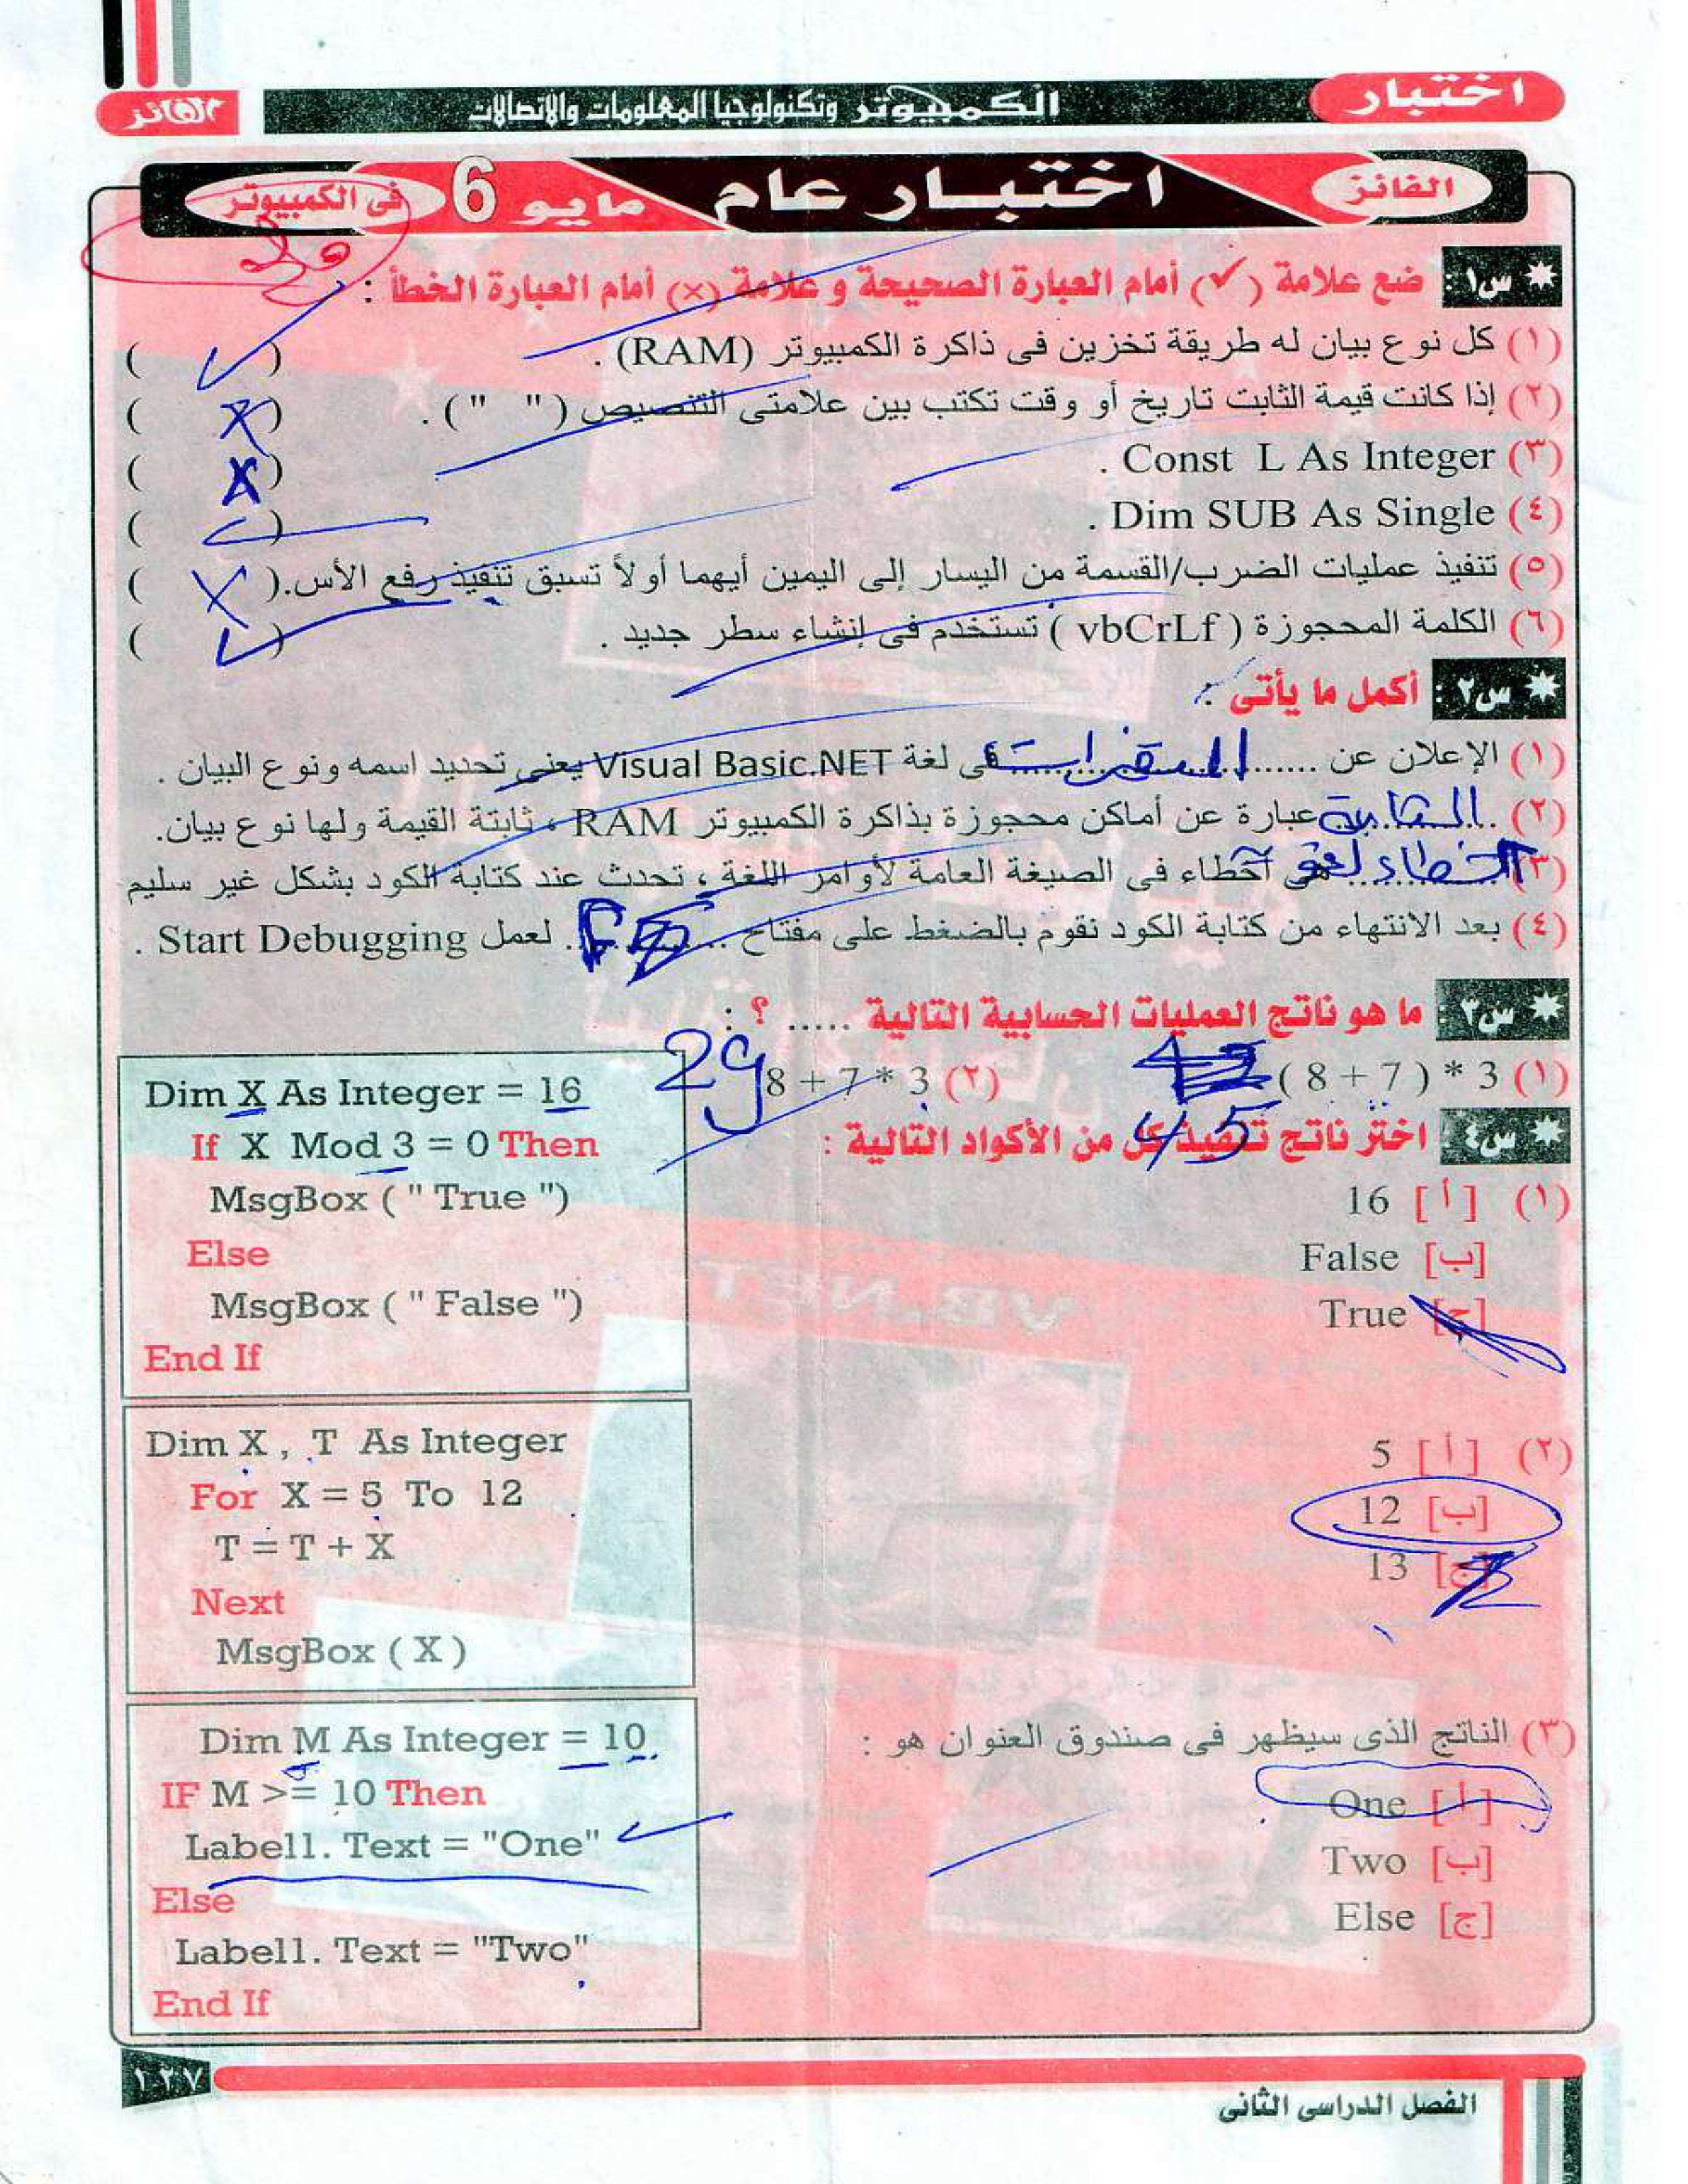 اختبار
الكمبيوتر وتكنولوجيا المعلومات والاتصالات
الفائز
الفائز
اختبار عام
مايو 6
فى الكمبيوتر
س١ : ضع علامة (✓) أمام العبارة الصحيحة و علامة (×) أمام العبارة الخطأ :
(١) كل نوع بيان له طريقة تخزين فى ذاكرة الكمبيوتر (RAM) . ( ✓ )
(٢) إذا كانت قيمة الثابت تاريخ أو وقت تكتب بين علامتى التنصيص ( " " ) . ( X )
(٣) Const L As Integer . ( X )
(٤) Dim SUB As Single . ( ✓ )
(٥) تنفيذ عمليات الضرب/القسمة من اليسار إلى اليمين أيهما أولاً تسبق تنفيذ رفع الأس. ( X )
(٦) الكلمة المحجوزة ( vbCrLf ) تستخدم فى إنشاء سطر جديد . ( ✓ )
س٢ : أكمل ما يأتى :
(١) الإعلان عن ..... المتغيرات ..... فى لغة Visual Basic.NET يعنى تحديد اسمه ونوع البيان .
(٢) ..... عبارة عن أماكن محجوزة بذاكرة الكمبيوتر RAM ، ثابتة القيمة ولها نوع بيان.
(٣) ..... هى أخطاء فى الصيغة العامة لأوامر اللغة ، تحدث عند كتابة الكود بشكل غير سليم
(٤) بعد الانتهاء من كتابة الكود نقوم بالضغط على مفتاح ..... F5 ..... لعمل Start Debugging .
س٣ : ما هو ناتج العمليات الحسابية التالية ..... ؟ :
(١) ( 8 + 7 ) * 3 45
(٢) 8 + 7 * 3 29
س٤ : اختر ناتج تنفيذ كل من الأكواد التالية :
(١) [أ] 16
[ب] False
[ج] True
Dim X As Integer = 16
If X Mod 3 = 0 Then
MsgBox ( " True ")
Else
MsgBox ( " False ")
End If
(٢) [أ] 5
[ب] 12
[ج] 13
Dim X , T As Integer
For X = 5 To 12
T = T + X
Next
MsgBox ( X )
(٣) الناتج الذى سيظهر فى صندوق العنوان هو :
[أ] One
[ب] Two
[ج] Else
Dim M As Integer = 10
IF M >= 10 Then
Label1. Text = "One"
Else
Label1. Text = "Two"
End If
١٢٧
الفصل الدراسى الثانى